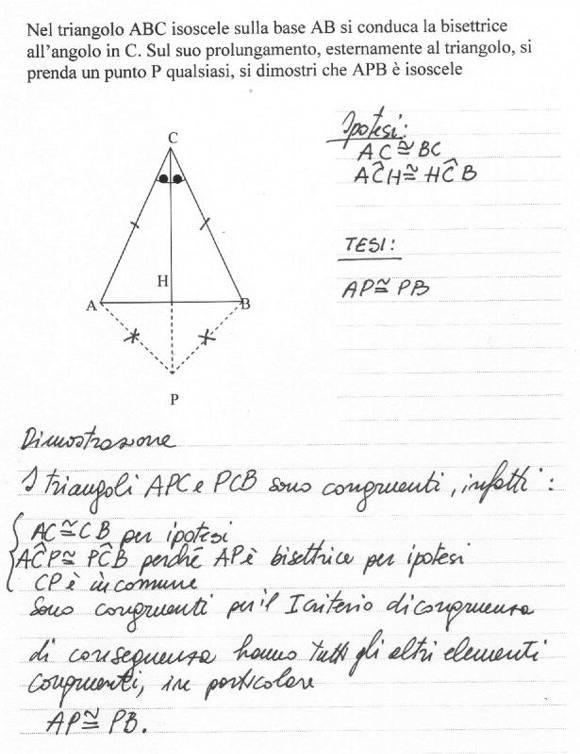 Nel triangolo ABC isoscele sulla base AB si conduca la bisettrice
all'angolo in C. Sul suo prolungamento, esternamente al triangolo, si
prenda un punto P qualsiasi, si dimostri che APB è isoscele
Ipotesi:
AC≅BC
AĈH≅HĈB
TESI:
AP≅PB
C
H
A
B
P
Dimostrazione
I triangoli APC e PCB sono congruenti, infatti:
AC≅CB per ipotesi
AĈP≅PĈB perché AP è bisettrice per ipotesi
CP è in comune
Sono congruenti per il I criterio di congruenza
di conseguenza hanno tutti gli altri elementi
congruenti, in particolare
AP≅PB.